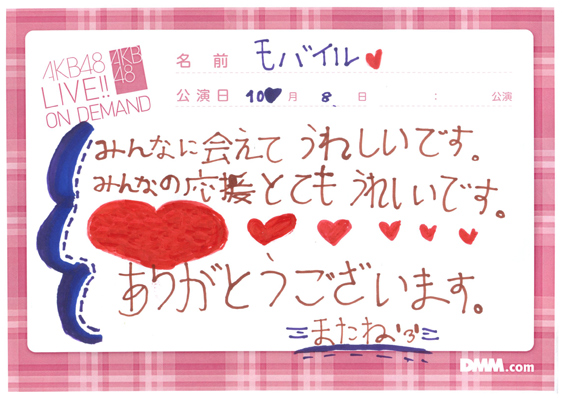 AKB48
LIVE!!
ON DEMAND
AKB
48
名前 モバイル
公演日 10月 8日 : 公演
みんなに会えてうれしいです。
みんなの応援とてもうれしいです。
ありがとうございます。
またね
DMM.com